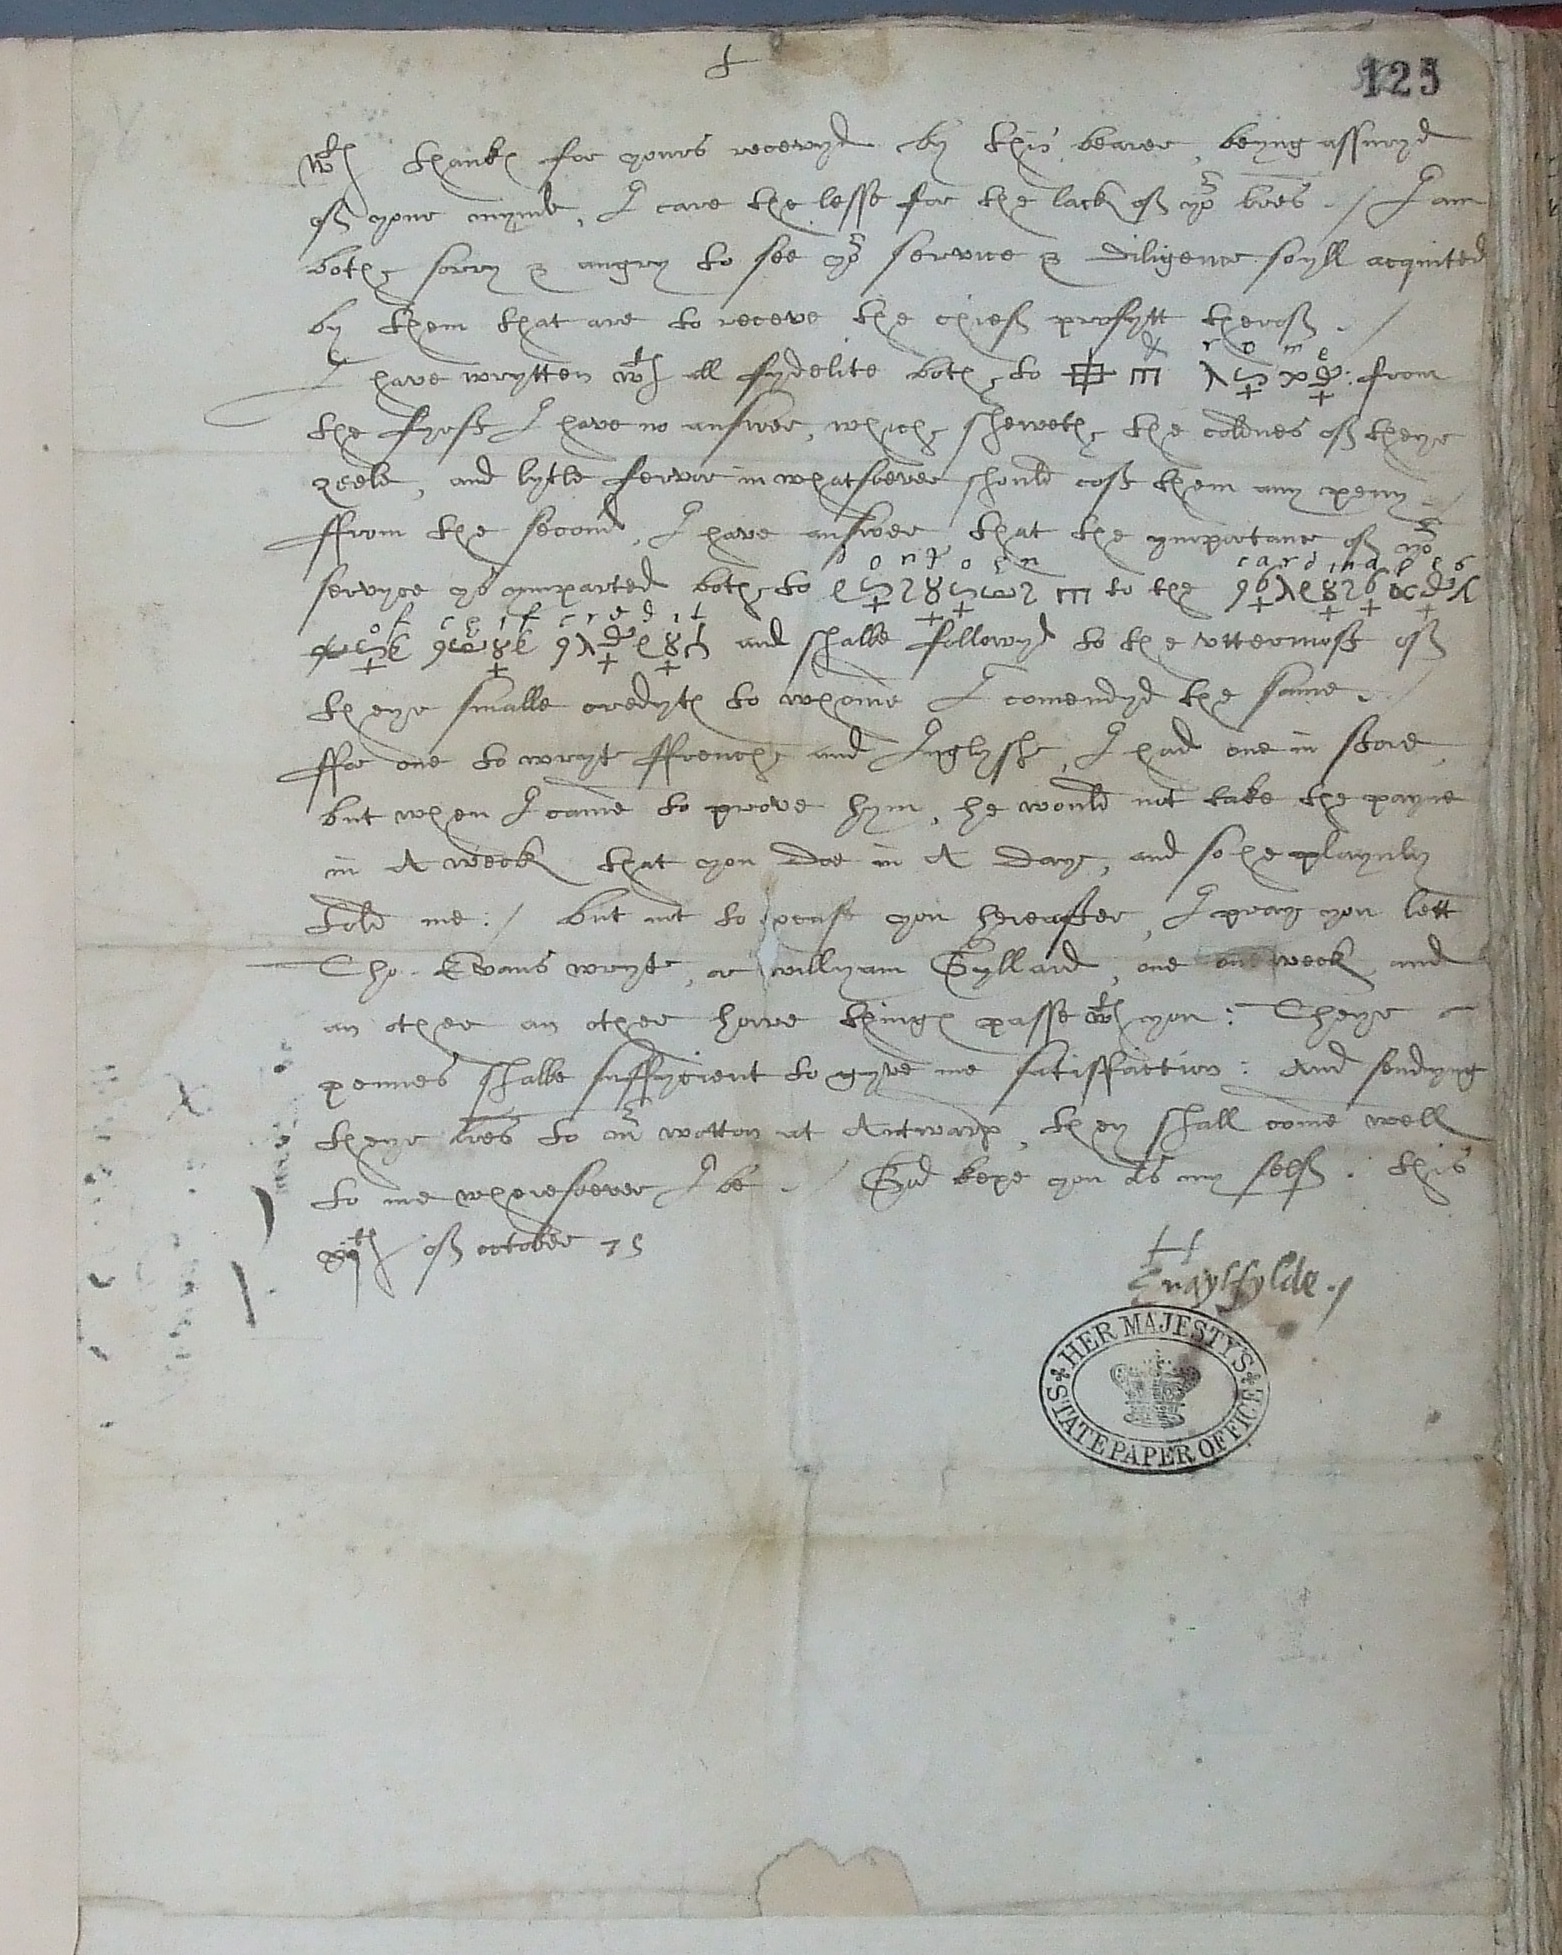 125
wth thankes for yours recevyd by this bearer, beyng assuryd
off your mynde, I care the lesse for the lack off yor lres ./ I am
bothe sorry & angry to see yor service & diligence so yll acquited
by them that are to receve the chieff profytt theroff ./
& r o m e
I have wrytten wth all fydelite bothe to from
the fyrst I have no answer, which sheweth the coldnes off theyr
zeele, and lytle fervor in whatsoever should cost them any peny ./
ffrom the second, I have answer that the ymportance off yor
c a r d i n a l e s
servyce ys ymparted bothe to to the
o f c h i f c r e d i t
and shalbe followyd to the uttermost off
theyr smalle credyth to whome I comendyd the same ./
ffor one to wryte ffrenche and Inglyshe, I had one in store,
but when I came to prove hym, he would not take the payne
in A week that you doe in A daye, and so he playnly
told me: / but not to you hereafter, I pray you lett
Tho. Evans wryte, or willyam Gyllard, one on week and
an other an other howe thinges passe wth you: Theyr
pennes shalbe suffycient to gyve me satisffaction: And sendyng
theyr lres to mr wotton at Antwarp, they shall come well
to me wheresoever I be ./ God kepe you as my selff. this
off october 75
HER MAJESTY'S
STATE PAPER OFFICE